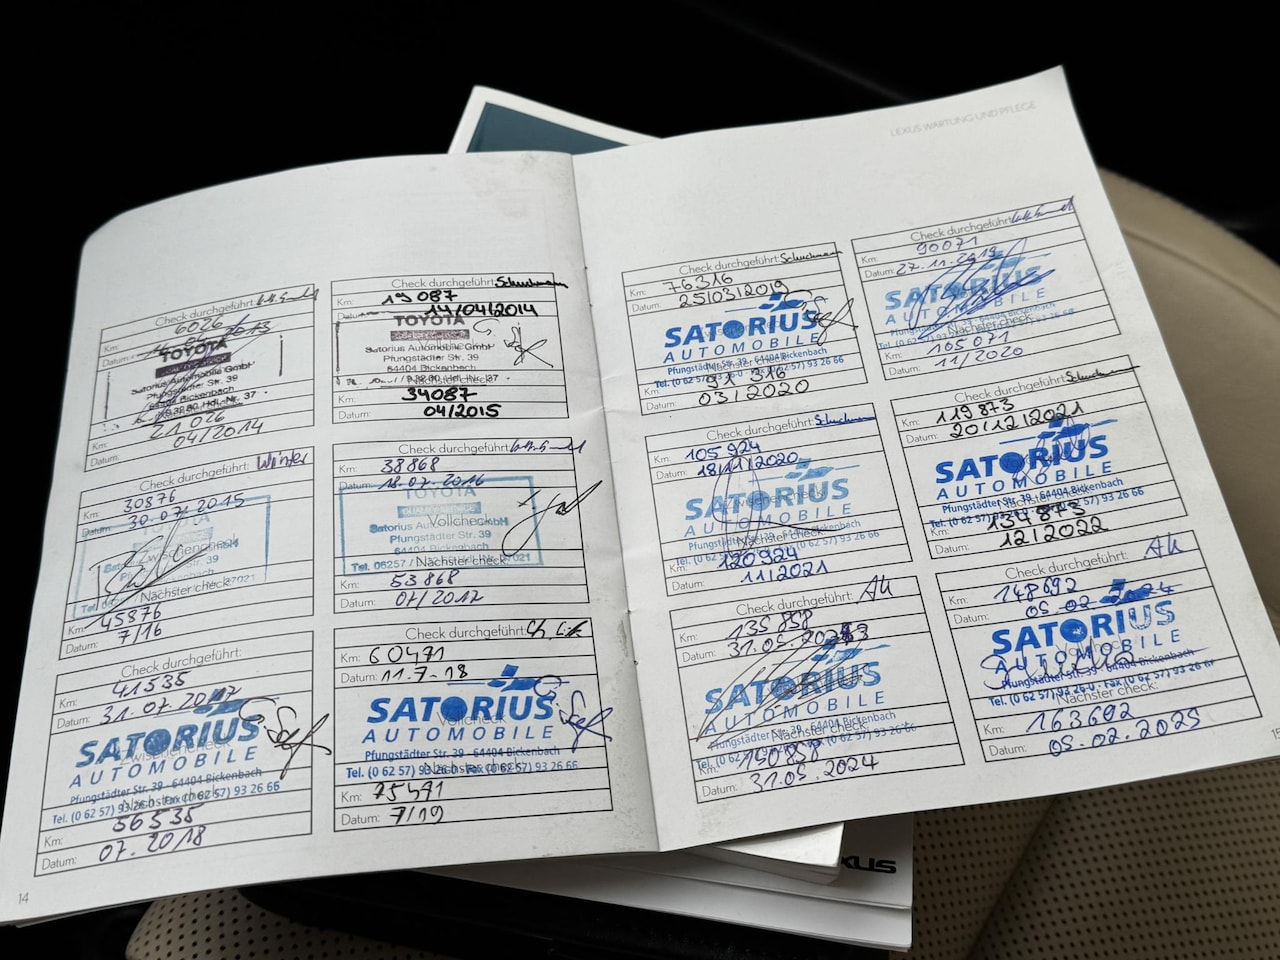 LEXUS WARTUNG UND PFLEGE
Check durchgeführt:
Km: 6026
Datum: 2013
TOYOTA
Satorius Automobile GmbH
Pfungstädter Str. 39
64404 Bickenbach
Km: 21026
Datum: 04/2014
Check durchgeführt: Schuchmann
Km: 19 087
Datum: 14/04/2014
TOYOTA
Satorius Automobile GmbH
Pfungstädter Str. 39
64404 Bickenbach
Nächster check:
Km: 34087
Datum: 04/2015
Check durchgeführt: Winter
Km: 30876
Datum: 30.07.2015
TOYOTA
Zwischencheck
Nächster check:
Km: 45876
Datum: 7/16
Check durchgeführt:
Km: 38868
Datum: 18.07.2016
TOYOTA
Satorius Automobile GmbH
Vollcheck
Pfungstädter Str. 39
64404 Bickenbach
Nächster check:
Km: 53868
Datum: 07/2017
Check durchgeführt:
Km: 41535
Datum: 31.07.2017
SATORIUS
Zwischencheck
AUTOMOBILE
Pfungstädter Str. 39 - 64404 Bickenbach
Nächster check:
Tel. (0 62 57) 93 26-0 · Fax (0 62 57) 93 26 66
Km: 56535
Datum: 07.2018
Check durchgeführt:
Km: 60471
Datum: 11.7.18
SATORIUS
Vollcheck
AUTOMOBILE
Pfungstädter Str. 39 - 64404 Bickenbach
Nächster check:
Tel. (0 62 57) 93 26-0 · Fax (0 62 57) 93 26 66
Km: 75471
Datum: 7/19
14
Check durchgeführt: Schuchmann
Km: 76316
Datum: 25/03/2019
SATORIUS
AUTOMOBILE
Pfungstädter Str. 39 - 64404 Bickenbach
Nächster check:
Tel. (0 62 57) 93 26-0 · Fax (0 62 57) 93 26 66
Km: 91 316
Datum: 03/2020
Check durchgeführt:
Km: 90071
Datum: 27.11.2019
SATORIUS
AUTOMOBILE
Nächster check:
Km: 105071
Datum: 11/2020
Check durchgeführt: Schuchmann
Km: 105 924
Datum: 18/11/2020
SATORIUS
Zwischencheck
AUTOMOBILE
Pfungstädter Str. 39 - 64404 Bickenbach
Nächster check:
Km: 120924
Datum: 11/2021
Check durchgeführt: Schuchmann
Km: 119873
Datum: 20/12/2021
SATORIUS
AUTOMOBILE
Pfungstädter Str. 39 - 64404 Bickenbach
Nächster check:
Tel. (0 62 57) 93 26-0 · Fax (0 62 57) 93 26 66
Km: 134873
Datum: 12/2022
Check durchgeführt:
Km: 135 858
Datum: 31.05.2023
SATORIUS
AUTOMOBILE
Pfungstädter Str. 39 - 64404 Bickenbach
Nächster check:
Km: 150858
Datum: 31.05.2024
Check durchgeführt:
Km: 148692
Datum: 05.02.2024
SATORIUS
AUTOMOBILE
Pfungstädter Str. 39 - 64404 Bickenbach
Tel. (0 62 57) 93 26-0 · Fax (0 62 57) 93 26 66
Nächster check:
Km: 163692
Datum: 05.02.2025